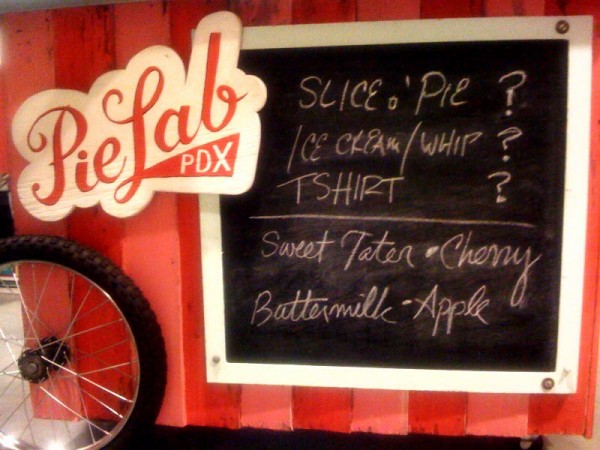 PieLab
PDX
SLICE o' PIE ?
ICE CREAM/WHIP ?
TSHIRT ?
Sweet Tater • Cherry
Buttermilk - Apple